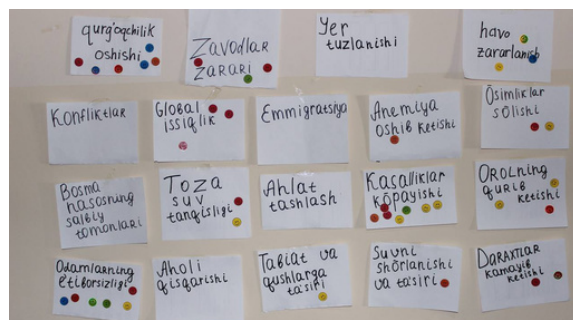 qurg'oqchilik
oshishi
Zavodlar
zarari
Yer
tuzlanishi
havo
zararlanish
Konfliktlar
Global
issiqlik
Emmigratsiya
Anemiya
oshib ketishi
Osimliklar
sOlishi
Bosma
nasosning
salbiy
tomonlari
Toza
suv
tanqisligi
Ahlat
tashlash
Kasalliklar
kopayishi
Orolning
qurib
ketishi
Odamlarning
etiborsizligi
Aholi
qisqarishi
Tabiat va
qushlarga
ta'siri
Suvni
shorlanishi
va ta'siri
Daraxtlar
kamayib
ketishi